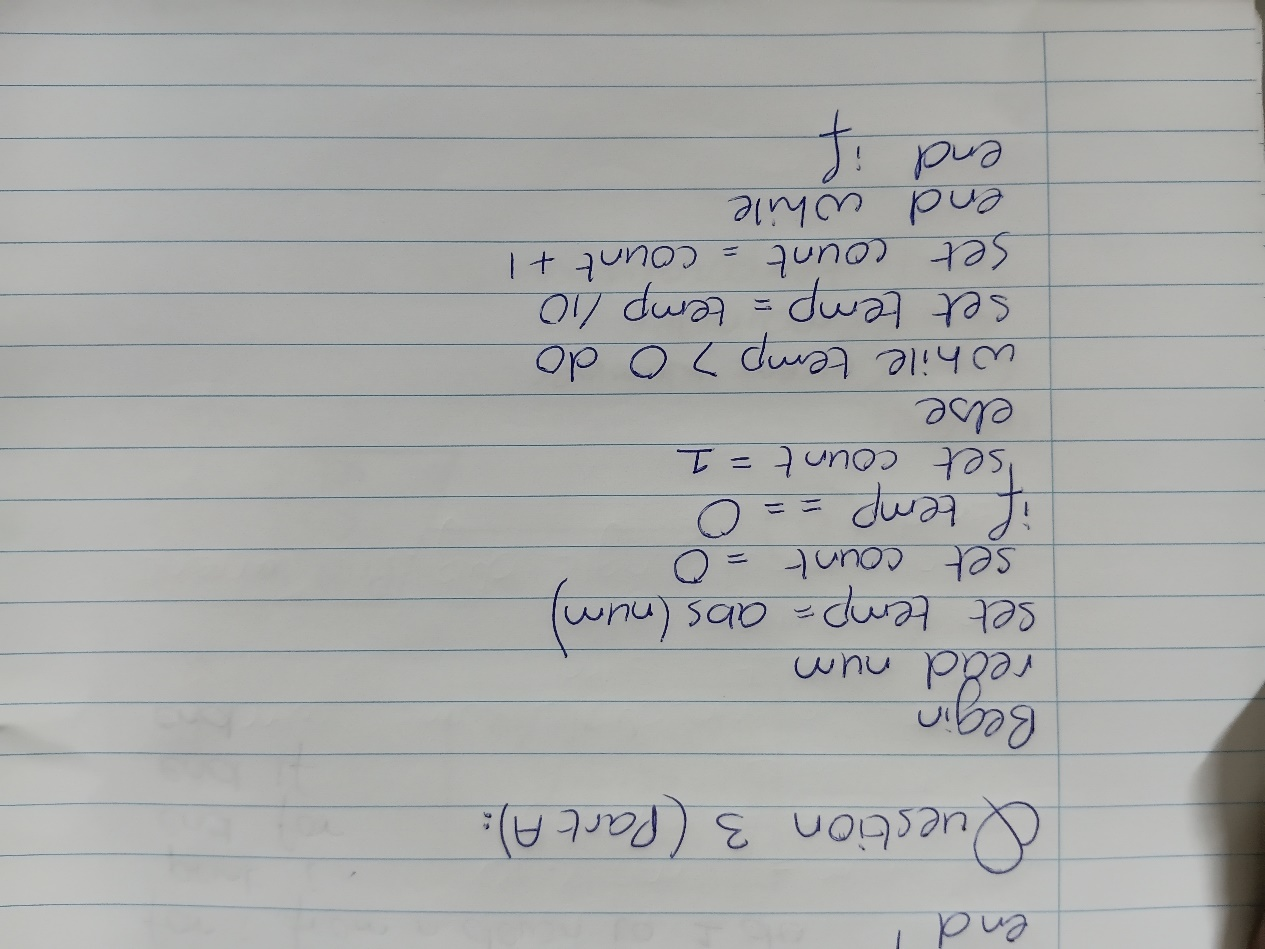 end
Question 3 (Part A):
Begin
read num
set temp = abs (num)
set count = 0
if temp == 0
set count = 1
else
while temp > 0 do
set temp = temp /10
set count = count +1
end while
end if